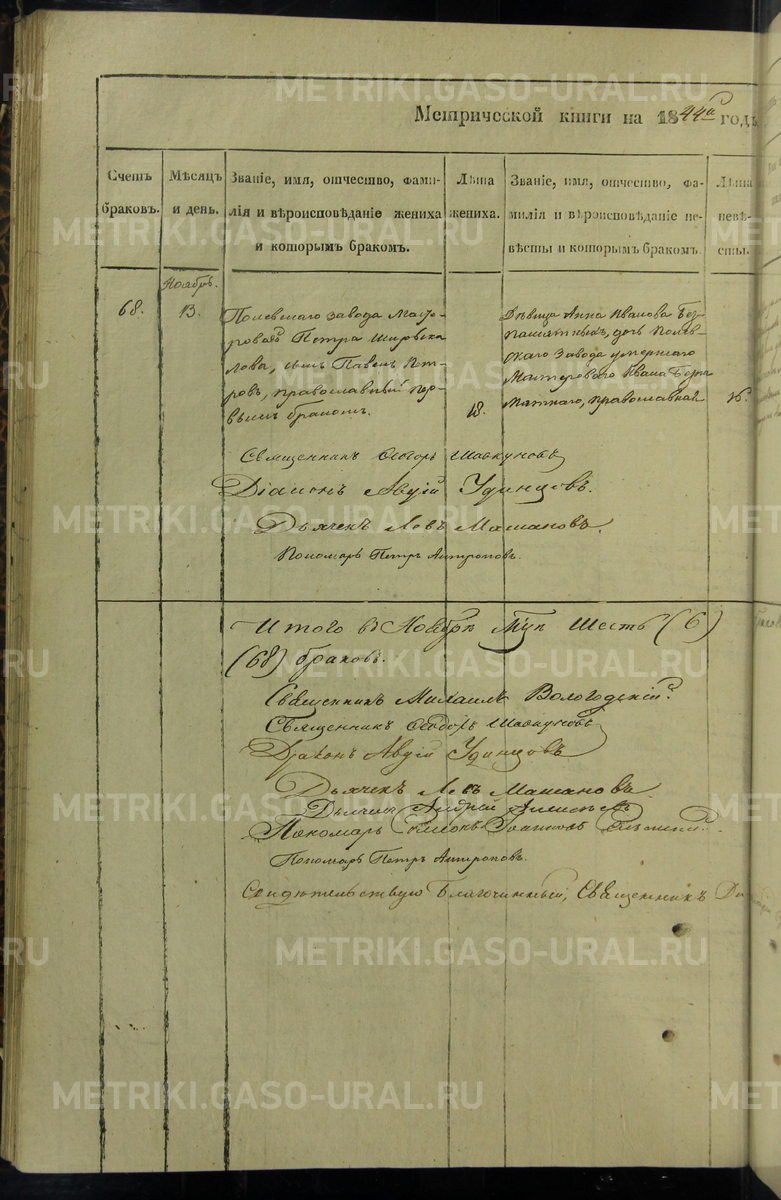 Метрической книги на 1844й годъ
Счетъ браковъ.
Мѣсяцъ и день.
Званіе, имя, отчество, фами-
лія и вѣроисповѣданіе жениха
и которымъ бракомъ.
Лѣта жениха.
Званіе, имя, отчество, фа-
милія и вѣроисповѣданіе не-
вѣсты и которымъ бракомъ.
Лѣта невѣ-
сты.
Ноябрь.
68.
13.
Полевскаго завода Масте-
роваго Петра
сынъ Павелъ Пет-
ровъ, православный пер-
вымъ бракомъ.
18.
Дѣвица Анна Иванова Без-
памятныхъ, дочь Полев-
скаго завода умершаго
Мастероваго Ивана Безпа-
мятнаго, православная
16.
Священникъ Ѳеодоръ
Діаконъ Авдій Удинцовъ.
Дьячекъ Левъ Машановъ.
Пономарь Петръ Антроповъ.
Итого въ Ноябрѣ Мцѣ Шесть (6)
(68) браковъ.
Священникъ Михаилъ Вологодскій
Священникъ Ѳеодоръ
Діаконъ Авдій Удинцовъ
Дьячекъ Левъ Машановъ.
Дьячекъ Андрей
Пономарь
Пономарь Петръ Антроповъ.
Свидѣтельствую Благочинный, Священникъ
METRIKI.GASO-URAL.RU